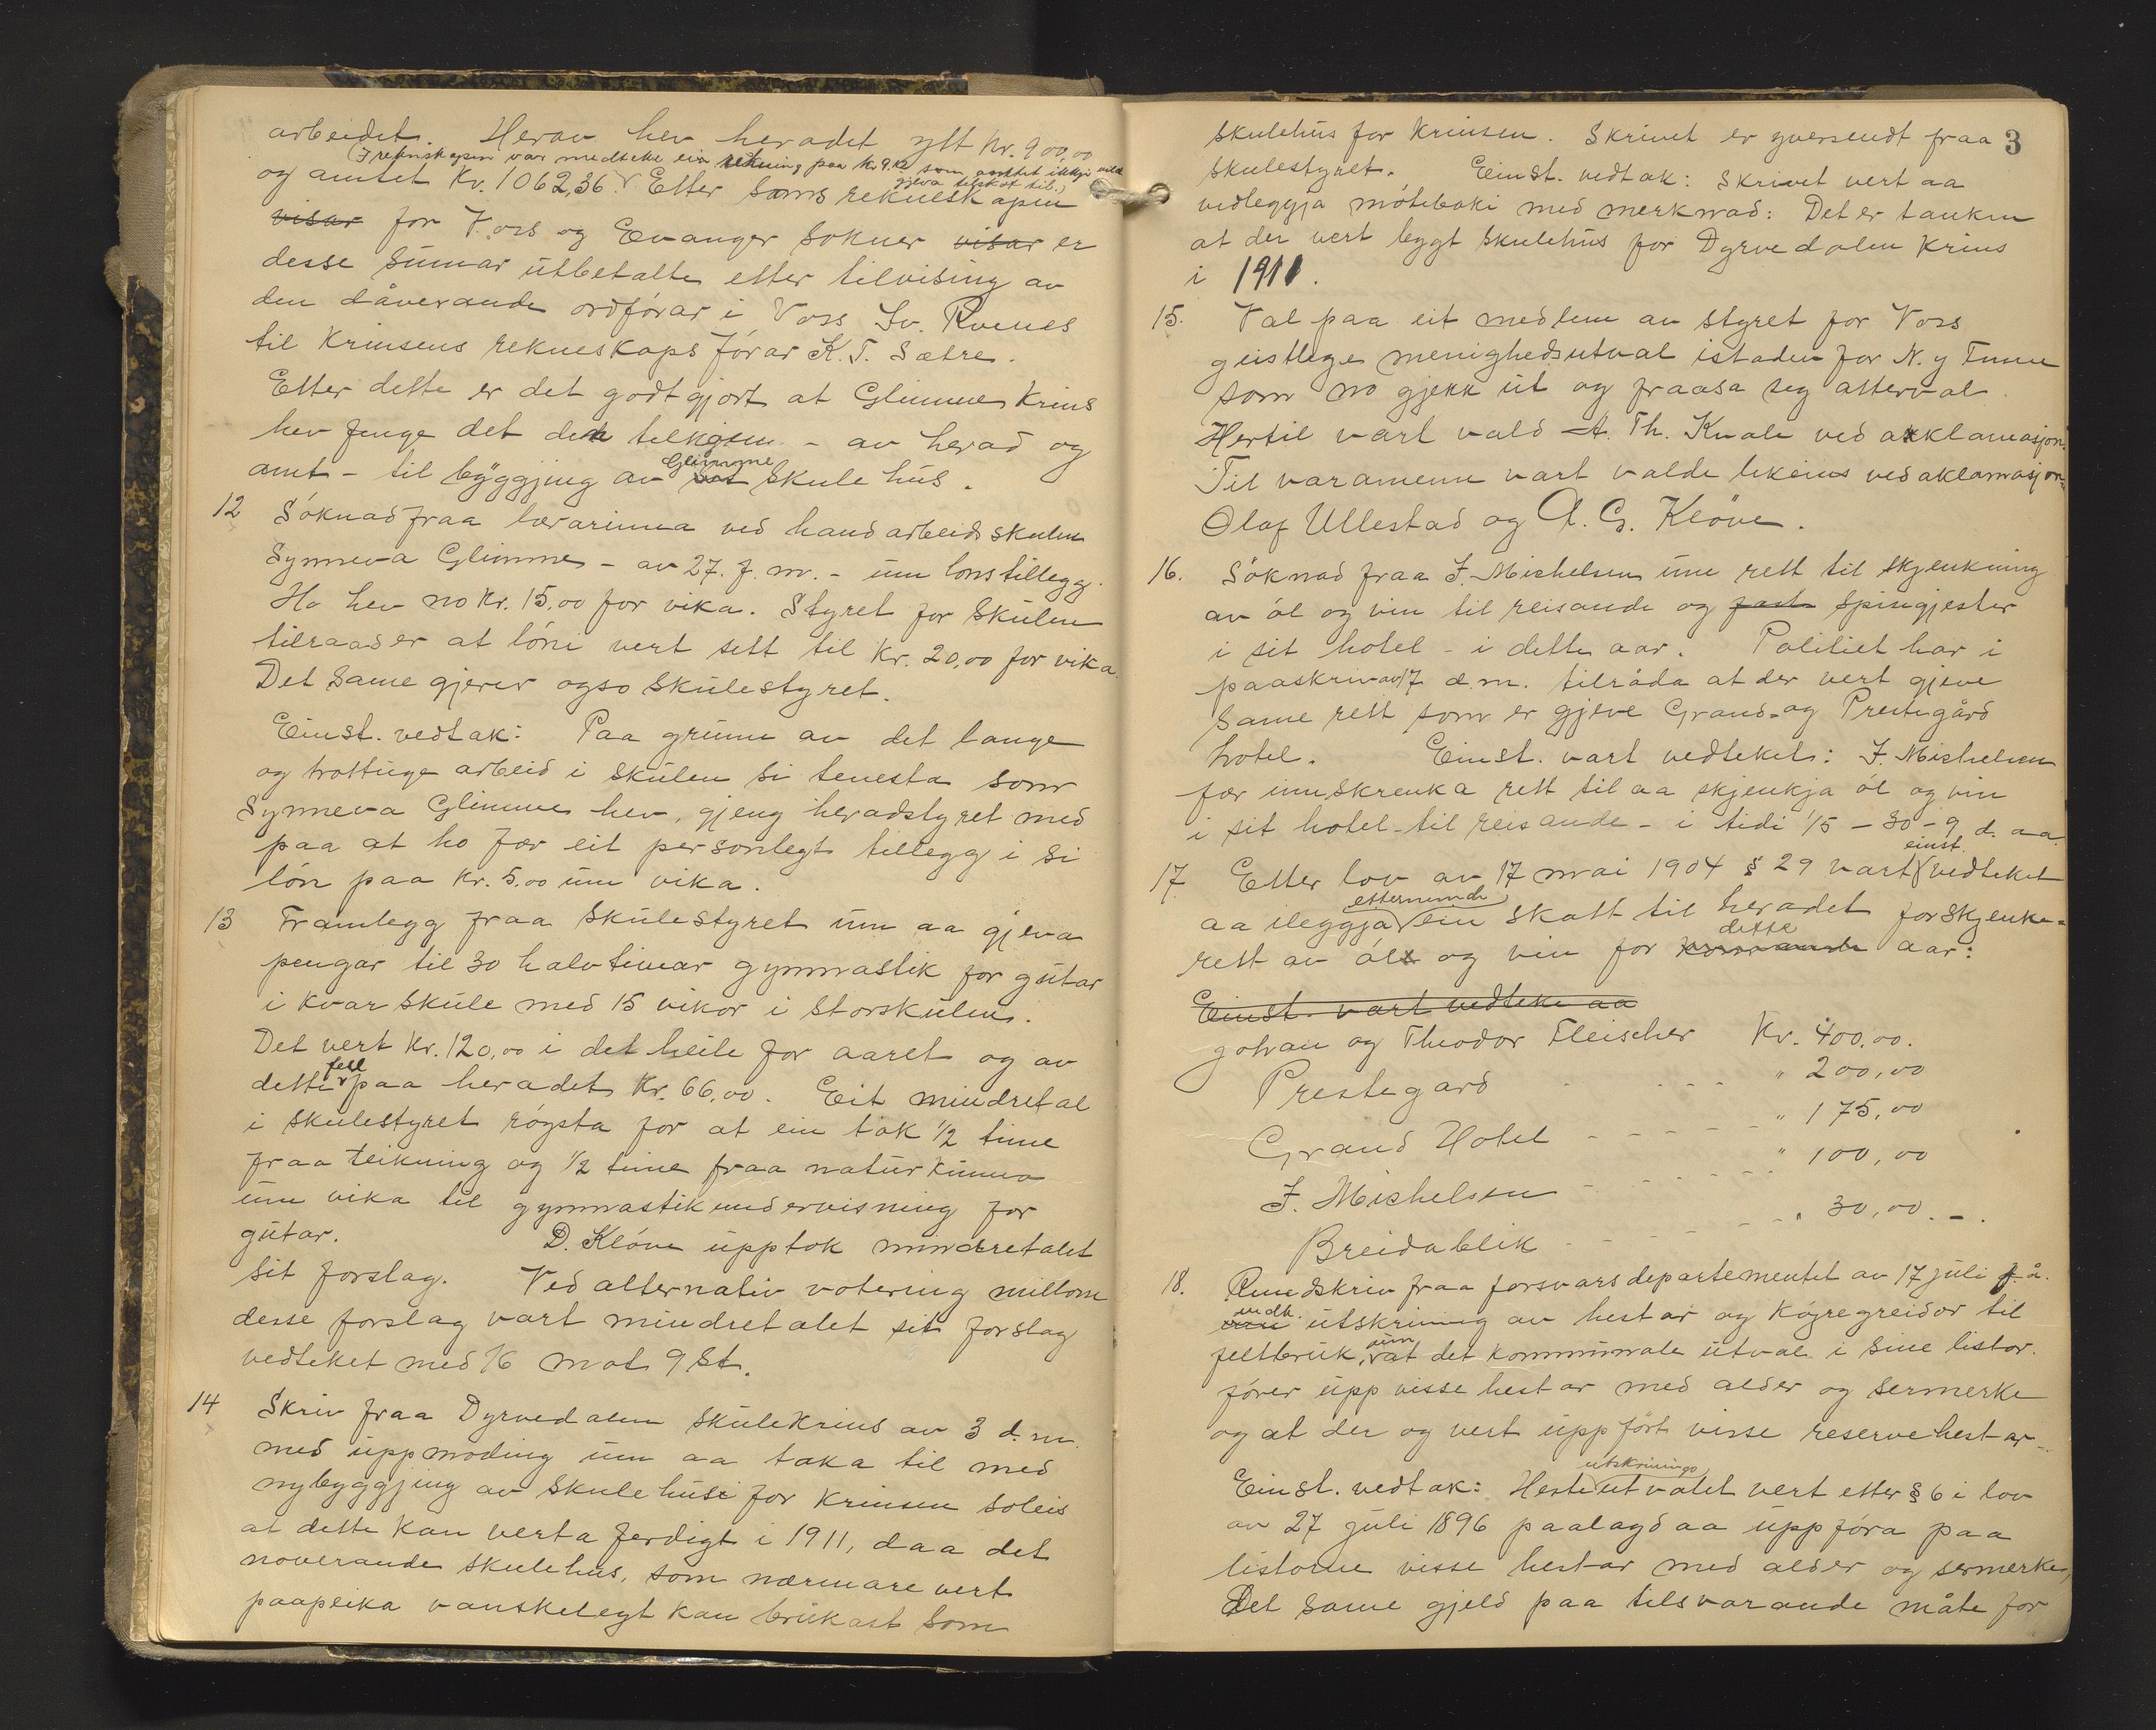 arbeidet. Herav hev heradet ytt Kr. 900,00
(I reknskapen var medteke ein rekning paa Kr 9.  som amtet ikkje vilde
gjeva tilskot til.)
og amtet Kr. 1062,36. Etter soms rekneskapen
visar for Voss og Evanger sokner visar er
desse sumar utbetalte etter tilvising av
den dåverande ordförar i Voss Sv. Rvenes
til Krinsens rekneskaps förar K. T. Sætre.
Etter dette er det godtgjort at Glimme Krins
hev fenge det den tilkjem - av herad og
amt - til byggjing av Glimme skule hus.
12 Söknad fraa lærarinna ved handarbeidsskulen
Synneva Glimme - av 27. f. m. - um lonstillegg.
Ho hev no Kr. 15,00 for vika. Styret for Skulen
tilraader at löni vert sett til Kr. 20,00 for vika.
Det same gjerer ogso skulestyret.
Einst. vedtak: Paa grunn av det lange
og trottuge arbeid i skulen si tenesta som
Synneva Glimme hev, gjeng heradstyret med
paa at ho fær eit personlegt tillegg i si
lön paa Kr. 5.00 um vika.
13 Framlegg fraa Skulestyret um aa gjeva
pengar til 30 halvtimar gymnastik for gutar
i kvar skule med 15 vikor i storskulen.
Det vert Kr. 120,00 i det heile for aaret og av
dette fell paa heradet Kr. 66,00. Eit mindretal
i skulestyret röysta for at ein tok 1/2 time
fraa teikning og 1/2 time fraa naturkunna
um vika til gymnastikundervisning for
gutar. D. Klöve upptok mindretalet
sit forslag. Ved alternativ votering millom
desse forslag vart mindretalet sit forslag
vedteket med 16 mot 9 St.
14 Skriv fraa Dyrvedalen skulekrins av 3 d. m.
med uppmoding um aa taka til med
nybyggjing av skulehuse for krinsen soleis
at dette kan verta ferdigt i 1911, daa det
noverande skulehus, som nærmare vert
paapeika vanskelegt kan brukast som
3
skulehus for krinsen. Skrivet er yversendt fraa
skulestyret. Einst. vedtak: Skrivet vert aa
vedleggja möteboki med merknad: Det er tanken
at der vert bygt skulehus for Dyrvedalen krins
i 1911.
15. Val paa eit medlem av styret for Voss
geistlege menighedsutval istaden for N. y Finne
som no gjekk ut og fraasa seg atterval.
Hertil vart vald A. Th. Kvale ved akklamasjon.
Til varamenn vart valde likeins ved aklamasjon:
Olaf Ullestad og A. G. Klöve.
16. Söknad fraa F. Michelsen um rett til skjenkning
av öl og vin til reisande og fast spisgjester
i sit hotel - i dette aar. Politiet har i
paaskriv av 17 d.m. tilråda at der vert gjeve
same rett som er gjeve Grand- og Prestegård
hotel. Einst. vart vedteket: F. Michelsen
fær innskrenka rett til aa skjenkja öl og vin
i sit hotel - til reisande - i tidi 1/5 - 30-9 d. aa.
17 Etter lov av 17 mai 1904 § 29 vart einst. vedteket
aa ileggja etternemnde ein skatt til heradet for skjenke-
rett av öl og vin for komande dette aar:
Einst. vart vedteke aa
Johan og Theodor Fleischer Kr. 400,00.
Prestegard - - - - " 200,00
Grand Hotel - - - - - " 175,00
F. Michelsen - - - - - " 100,00
Breidablik - - - - - - " 30,00. -.
18. Rundskriv fraa forsvarsdepartementet av 17 juli f. å.
vedk. utskriving av hestar og Köyregreidor til
feltbruk, um at det kommunale utval i sine listor
förer upp visse hestar med alder og sermerke
og at der og vert uppfört visse reservehestar.
Einst. vedtak: Hesteutskrivingsutvalet vert etter § 6 i lov
av 27 juli 1896 paalagd aa uppföra paa
listorne visse hestar med alder og sermerke,
Det same gjeld paa tilsvarande måte for